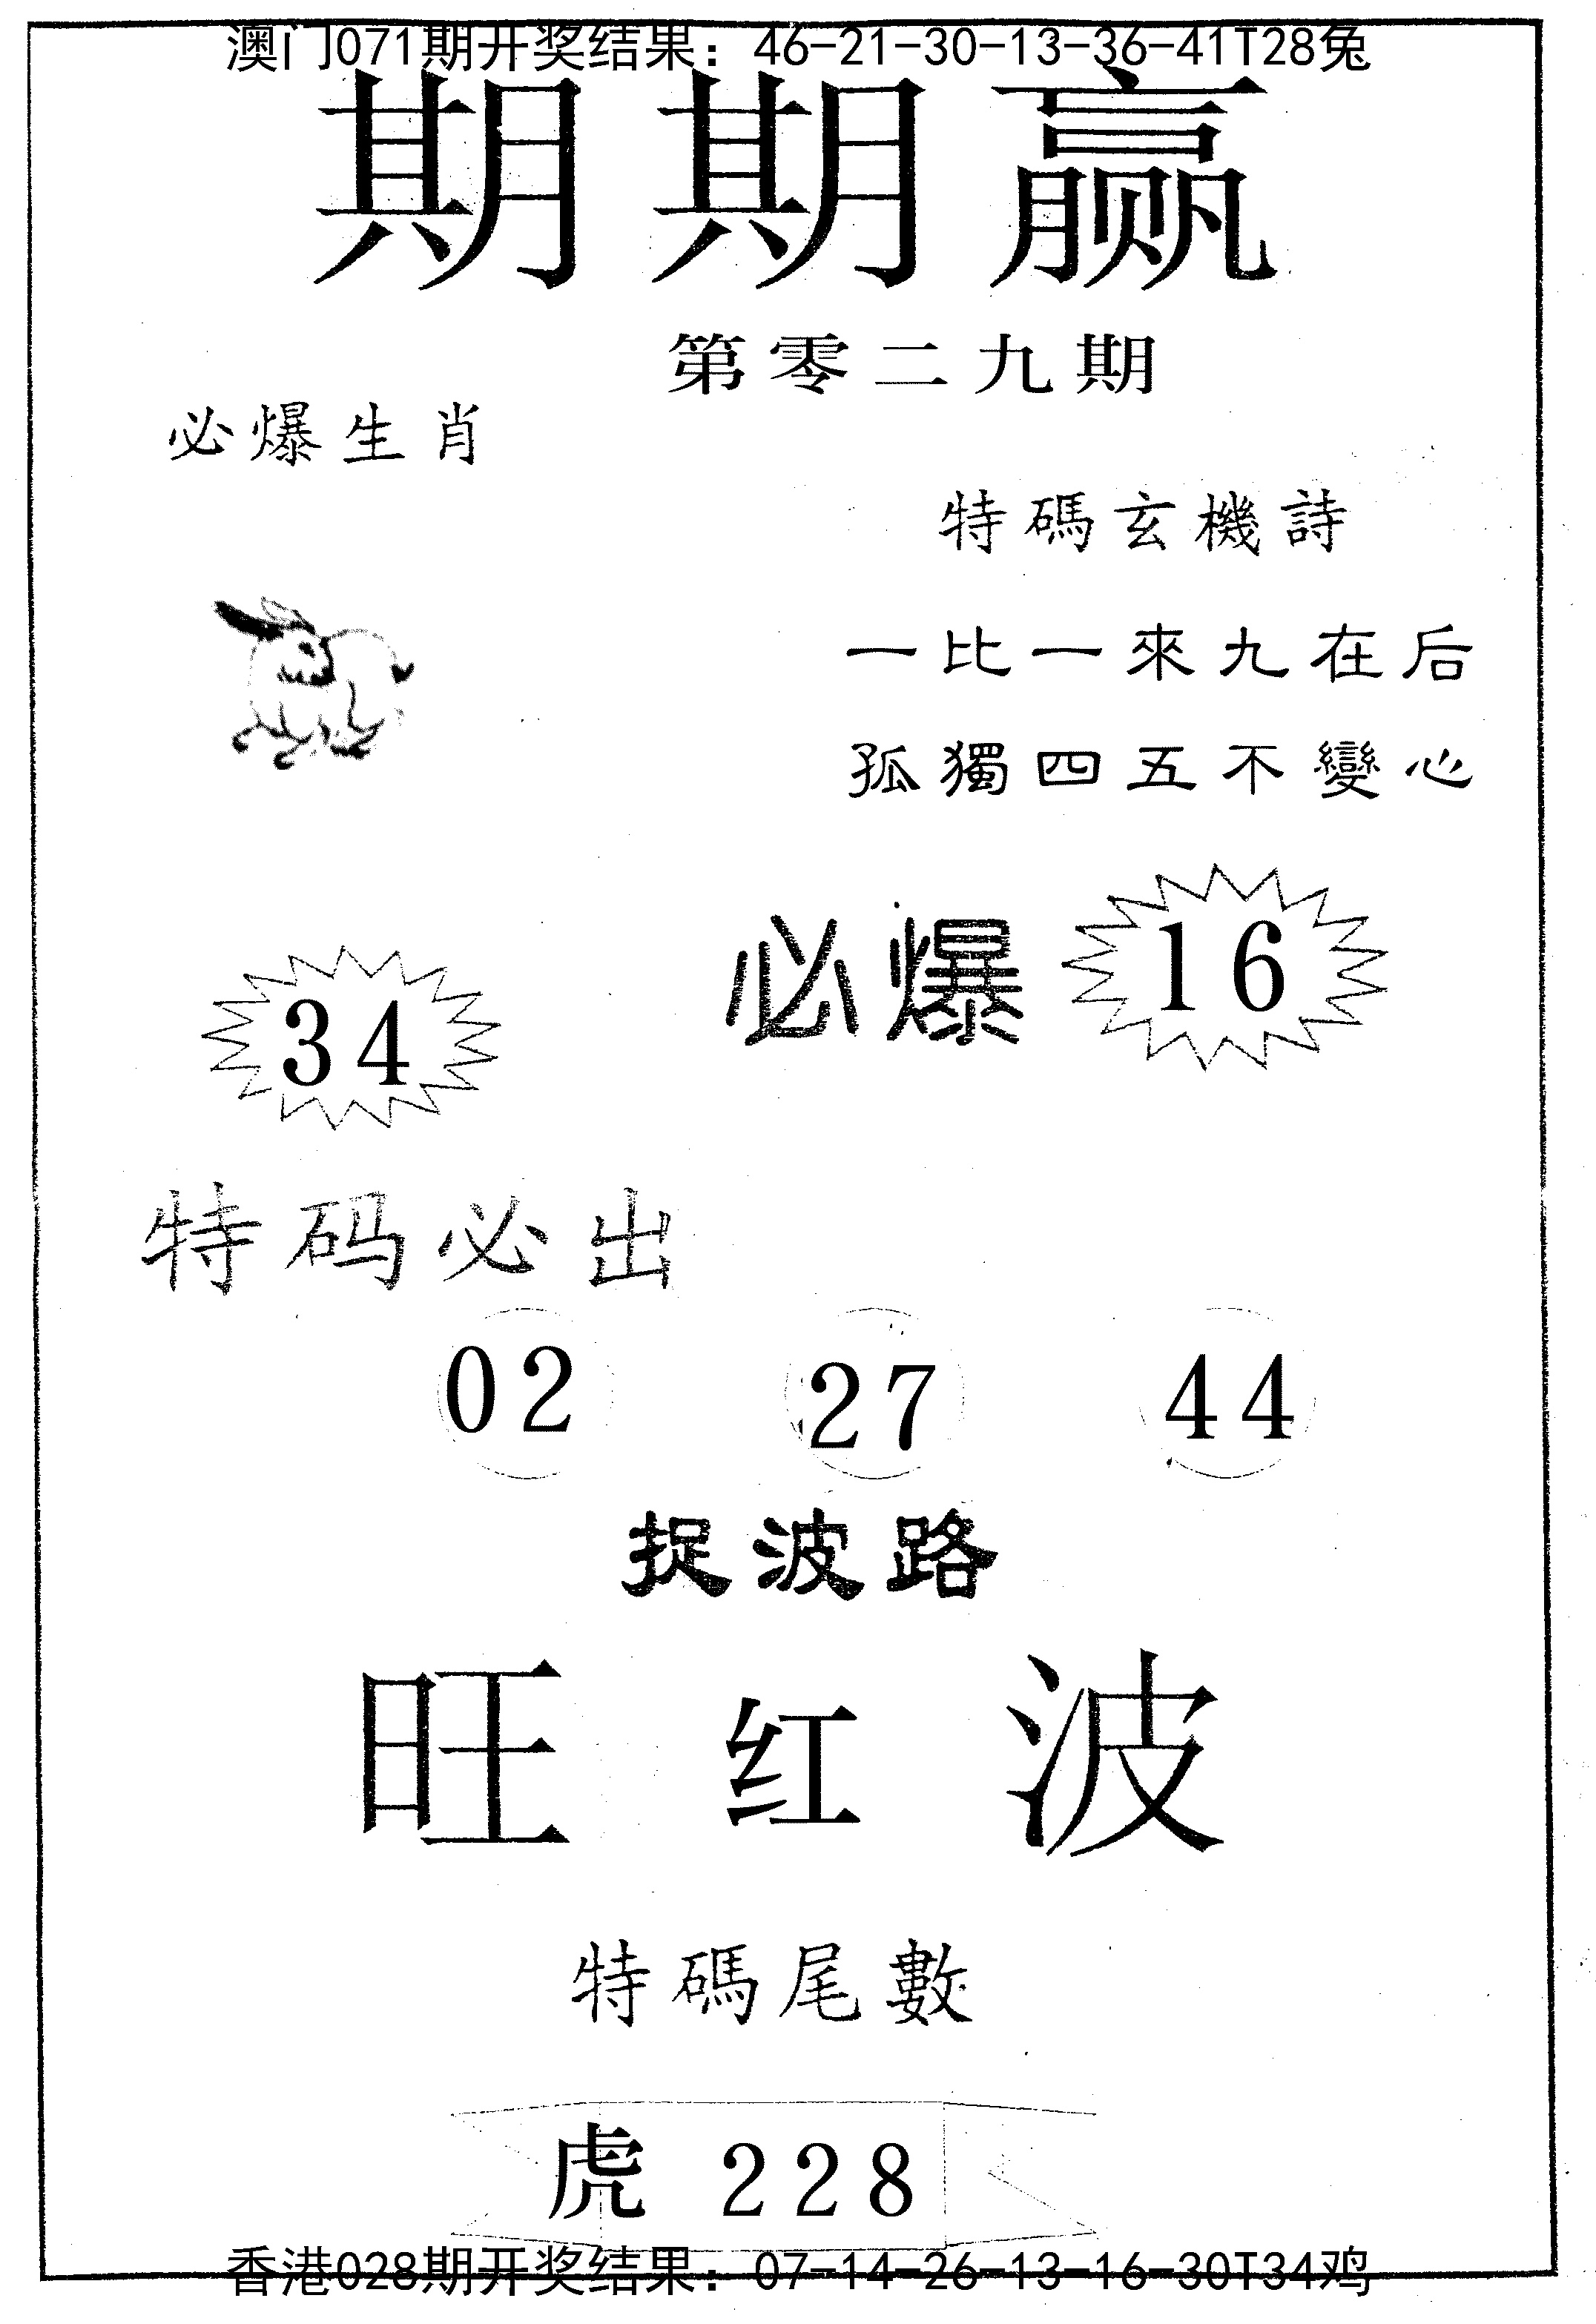 澳门071期开奖结果：46-21-30-13-36-41T28兔
期期赢
第零二九期
必爆生肖
特碼玄機詩
一比一來九在后
孤獨四五不變心
必爆 16
34
特码必出
02 27 44
捉波路
旺红波
特碼尾數
虎 228
香港028期开奖结果：07-14-26-13-16-30T34鸡